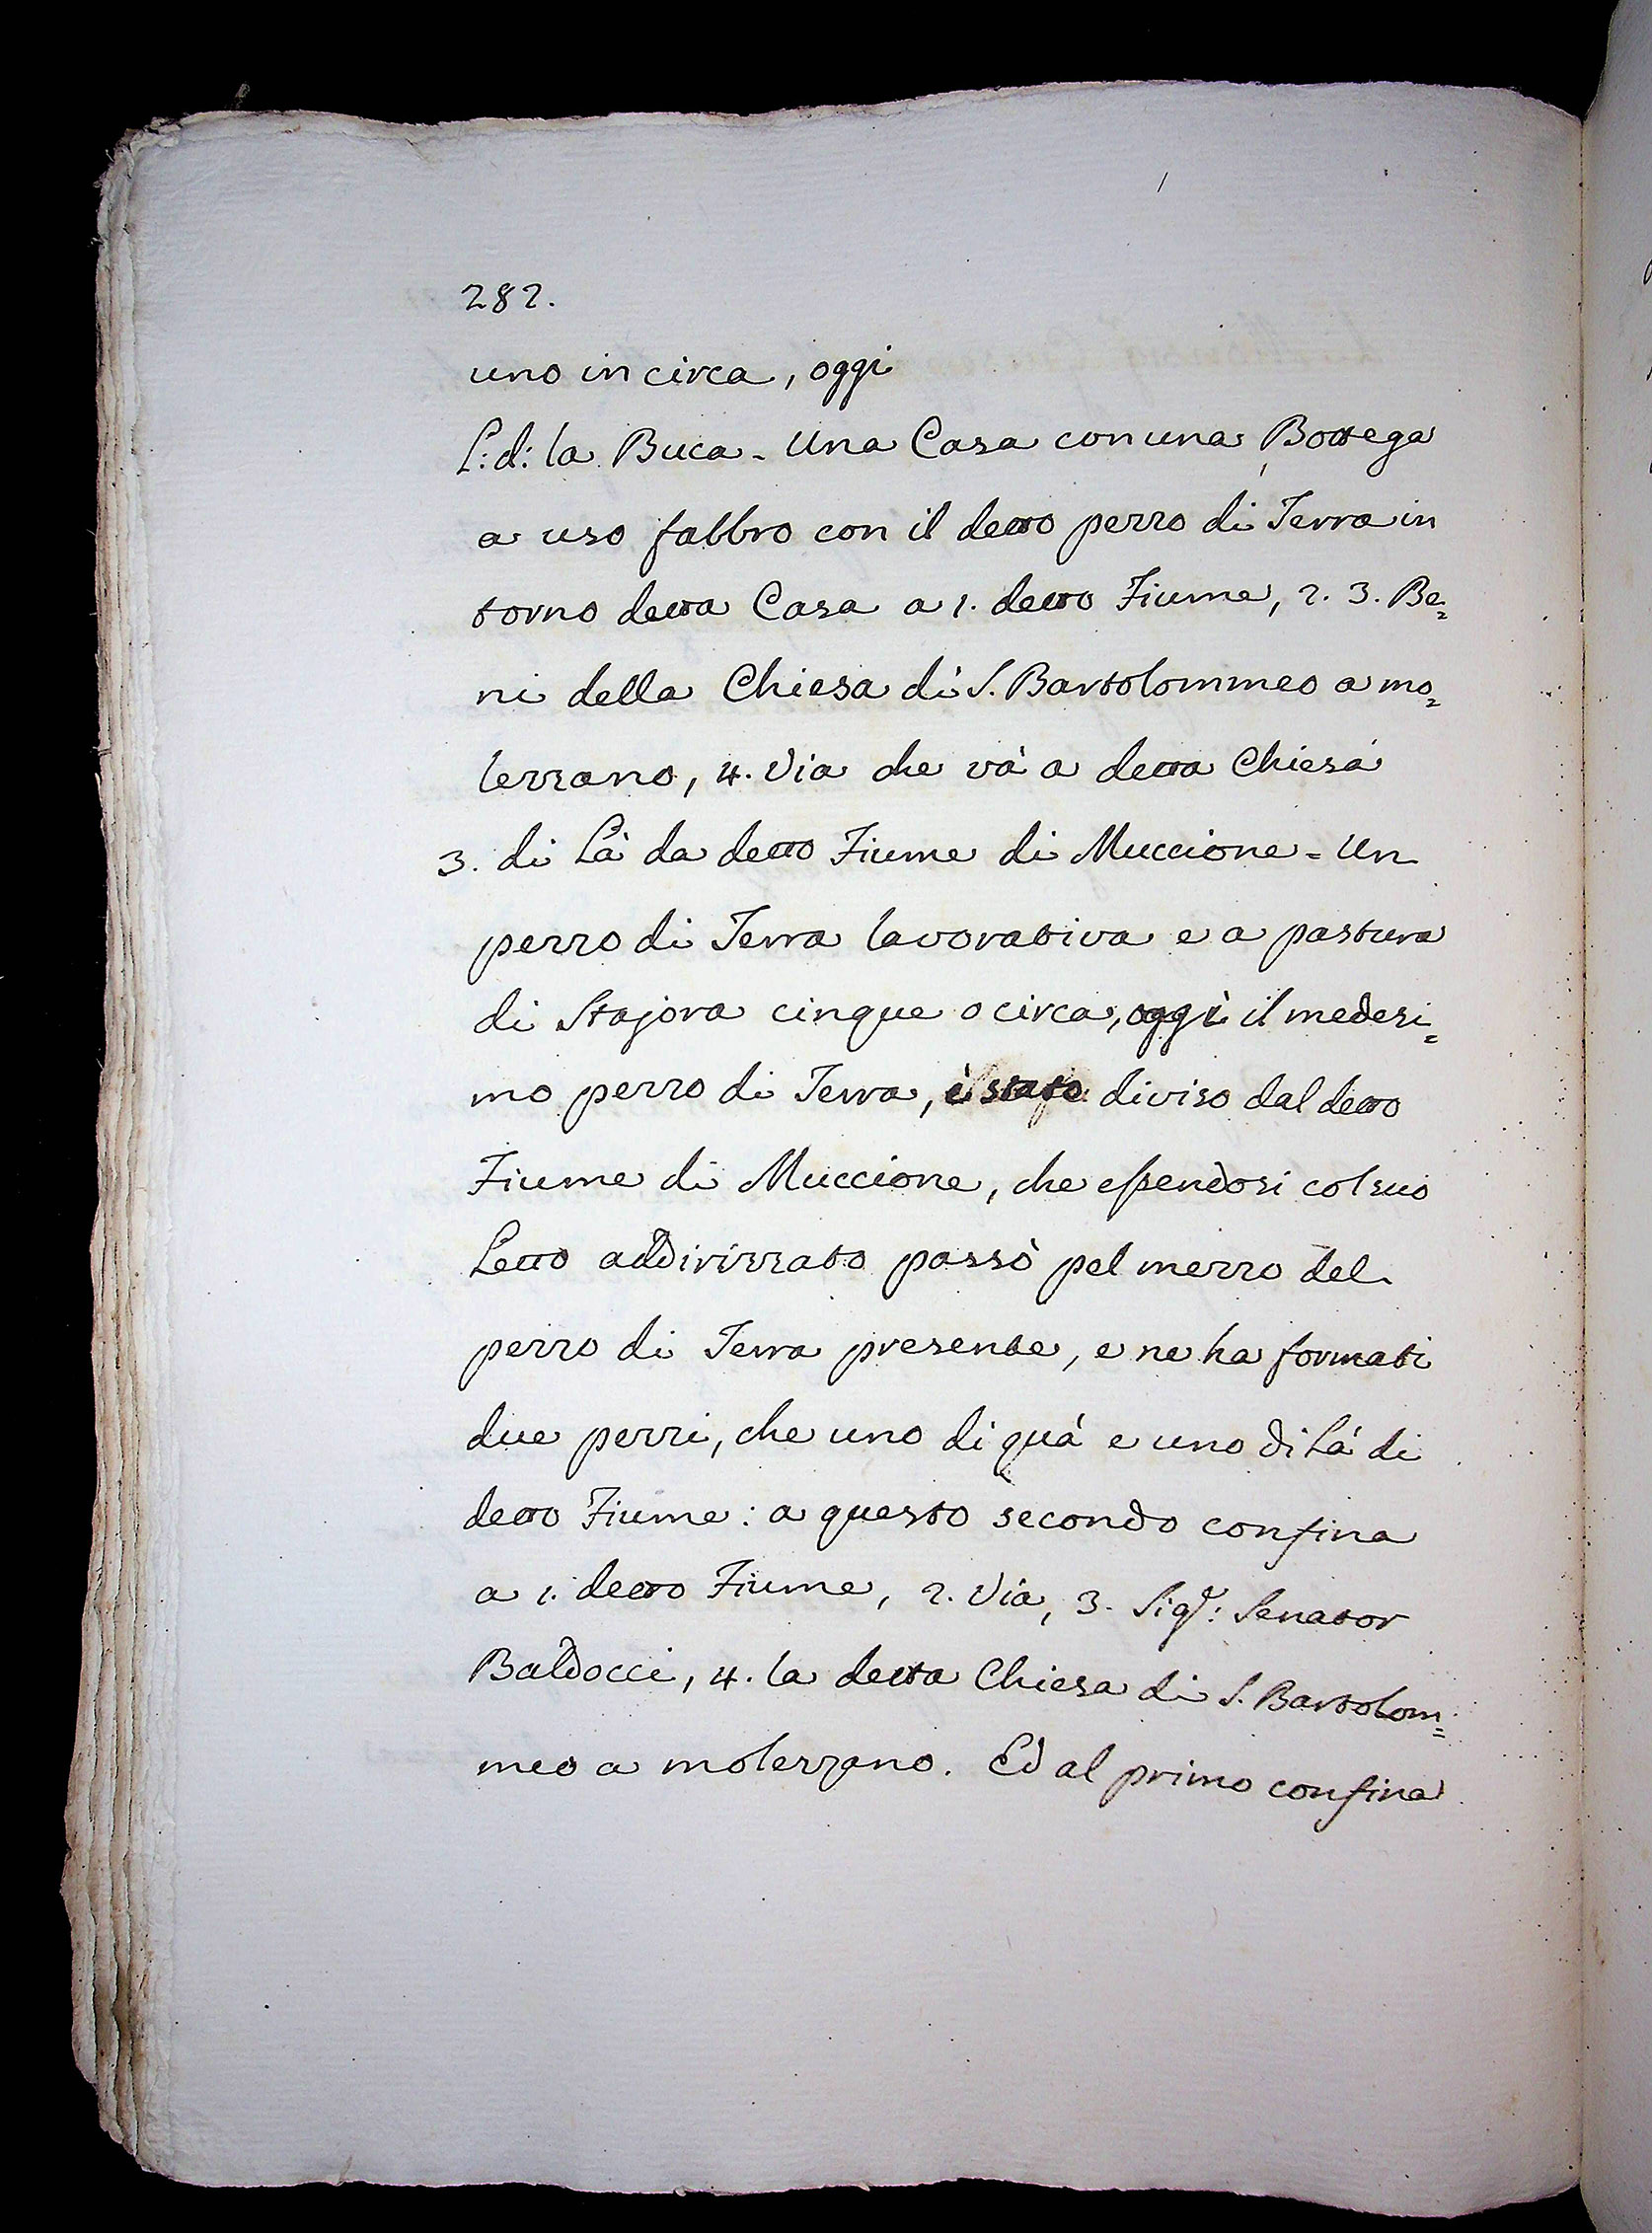 282.
uno in circa, oggi
L: d: la Buca - Una Casa con una Bottega
a uso fabbro con il detto pezzo di Terra in
torno detta Casa a 1. detto Fiume, 2. 3. Be=
ni della Chiesa di S. Bartolommeo a mo=
lezzano, 4. Via che và a detta Chiesa
3. di Là da detto Fiume di Muccione = Un
pezzo di Terra lavorativa e a pastura
di Stajora cinque o circa, oggi il medesi=
mo pezzo di Terra, è stato diviso dal detto
Fiume di Muccione, che essendosi col suo
Letto addirizzato passò pel mezzo del
pezzo di Terra presente, e ne ha formati
due pezzi, che uno di quà e uno di Là di
detto Fiume: a questo secondo confina
a 1. detto Fiume, 2. Via, 3. Sigr: Senator
Baldocci, 4. la detta Chiesa di S. Bartolom=
meo a molezzano. Ed al primo confina